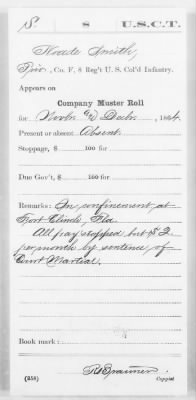 S. 8 U.S.C.T.
Smith,
Priv, Co. F, 8 Reg't U. S. Col'd Infantry.
Appears on
Company Muster Roll
for Novbr & Decbr, 1864.
Present or absent Absent.
Stoppage, $ 100 for
Due Gov't, $ 100 for
Remarks: In confinement at
Fort Clinch Fla
All pay stopped but $2
per month by sentence of
Court Martial.
Book mark:
(358)
Copyist